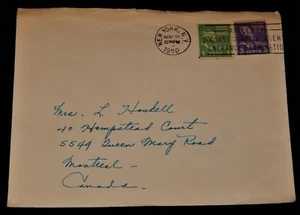 NEW YORK, N.Y.
NOV 15
1950
Mrs. L. Haskell
40 Hampstead Court
5549 Queen Mary Road
Montreal -
Canada -